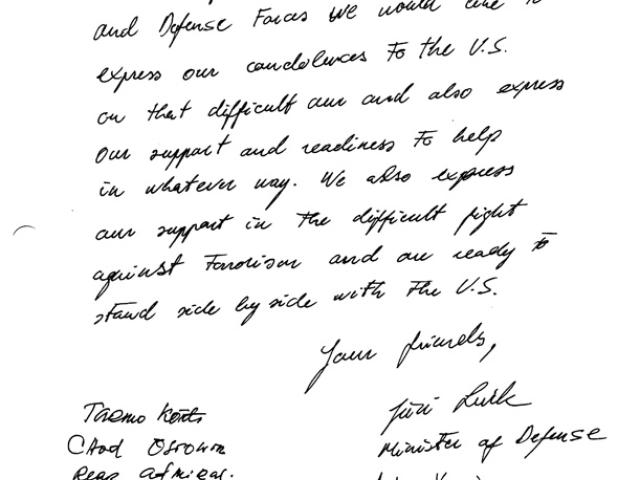 and Defense Forces we would like to
express our condolences to the U.S.
on that difficult our and also express
our support and readiness to help
in whatever way. We also express
our support in the difficult fight
against Terrorism and are ready to
stand side by side with the U.S.
Your friends,
Tarmo Kõuts
Jüri Luik
CHOD
Minister of Defense
Rear Admiral.